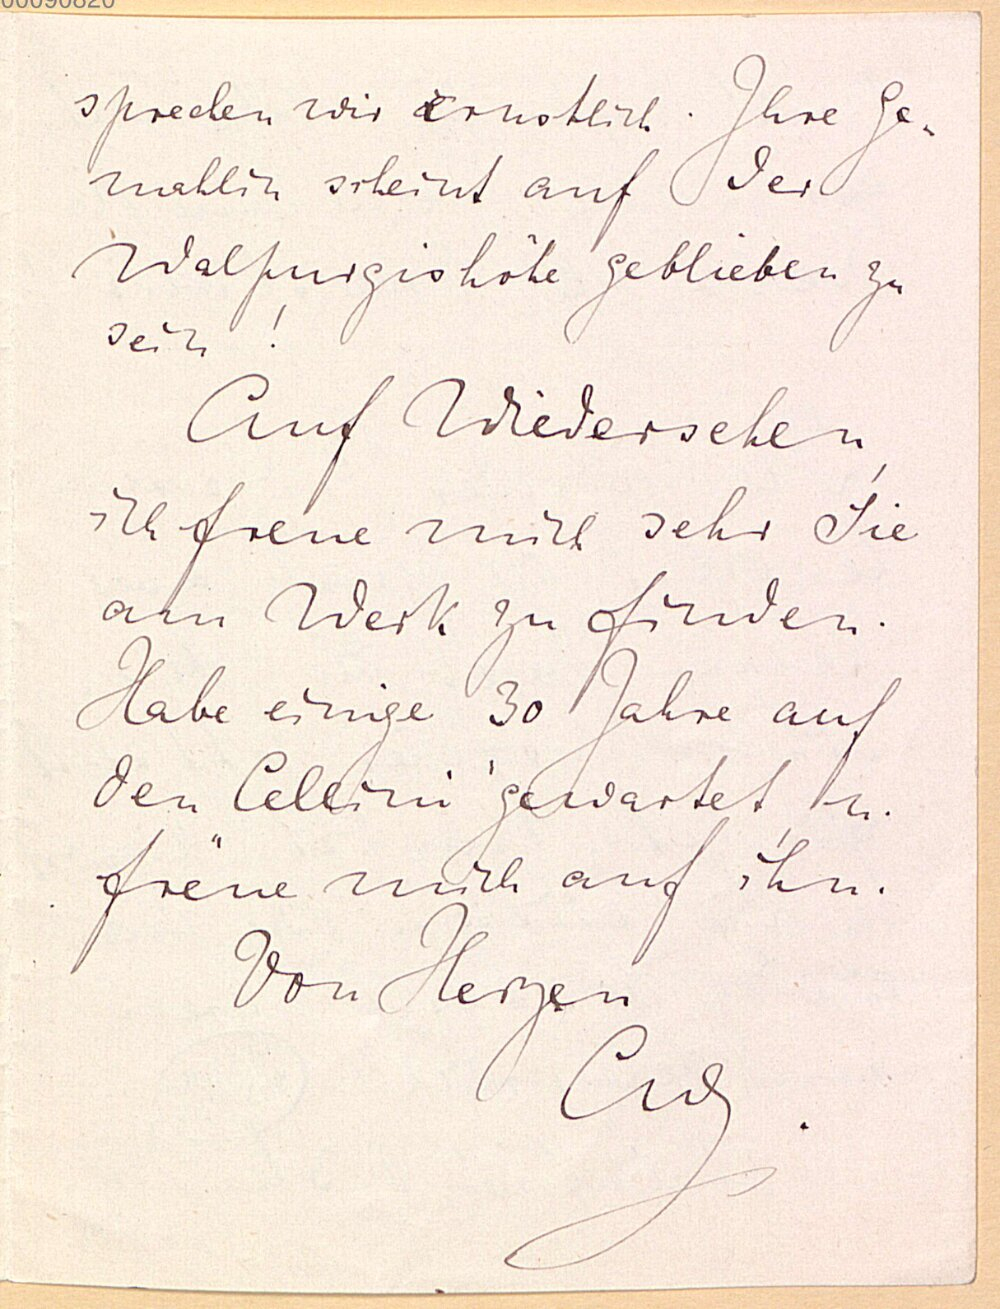 00090820
sprechen wir ernstlich. Ihre Ge-
mahlin scheint auf der
Walpurgishöhe geblieben zu
sein!
Auf Wiedersehen,
ich freue mich sehr Sie
am Werk zu finden.
Habe einige 30 Jahre auf
den Cellini gewartet, u.
freue mich auf ihn.
Von Herzen